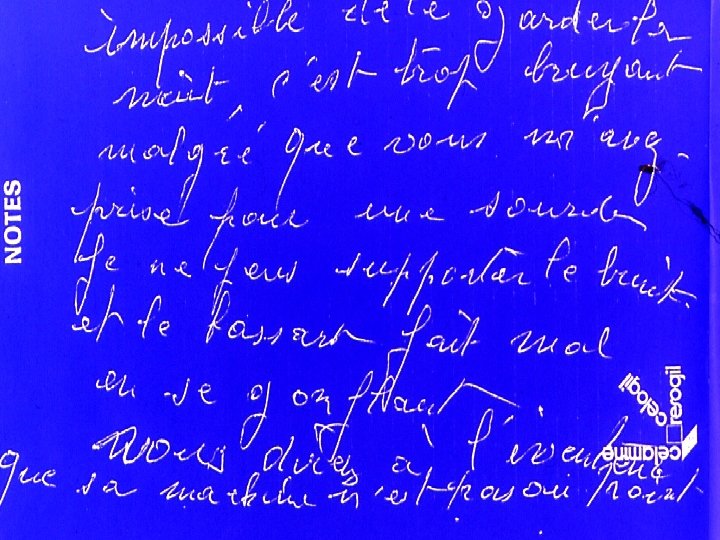 impossible de le garder la
nuit, c'est trop bruyant
malgré que vous m'avez
prise pour une sourde
Je ne peux supporter le bruit.
et le brassart fait mal
en se gonflant.
Vous direz à l'
que sa machine n'est pas au point
NOTES
celogil
rexogil
celamine